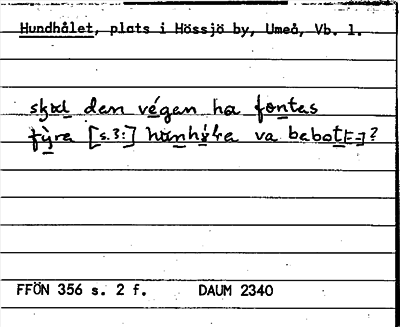 Hundhålet, plats i Hössjö by, Umeå, Vb. 1.
den végen ha fontas
fỳra [s.?:] va bebot[E-]?
FFÖN 356 s. 2 f. DAUM 2340